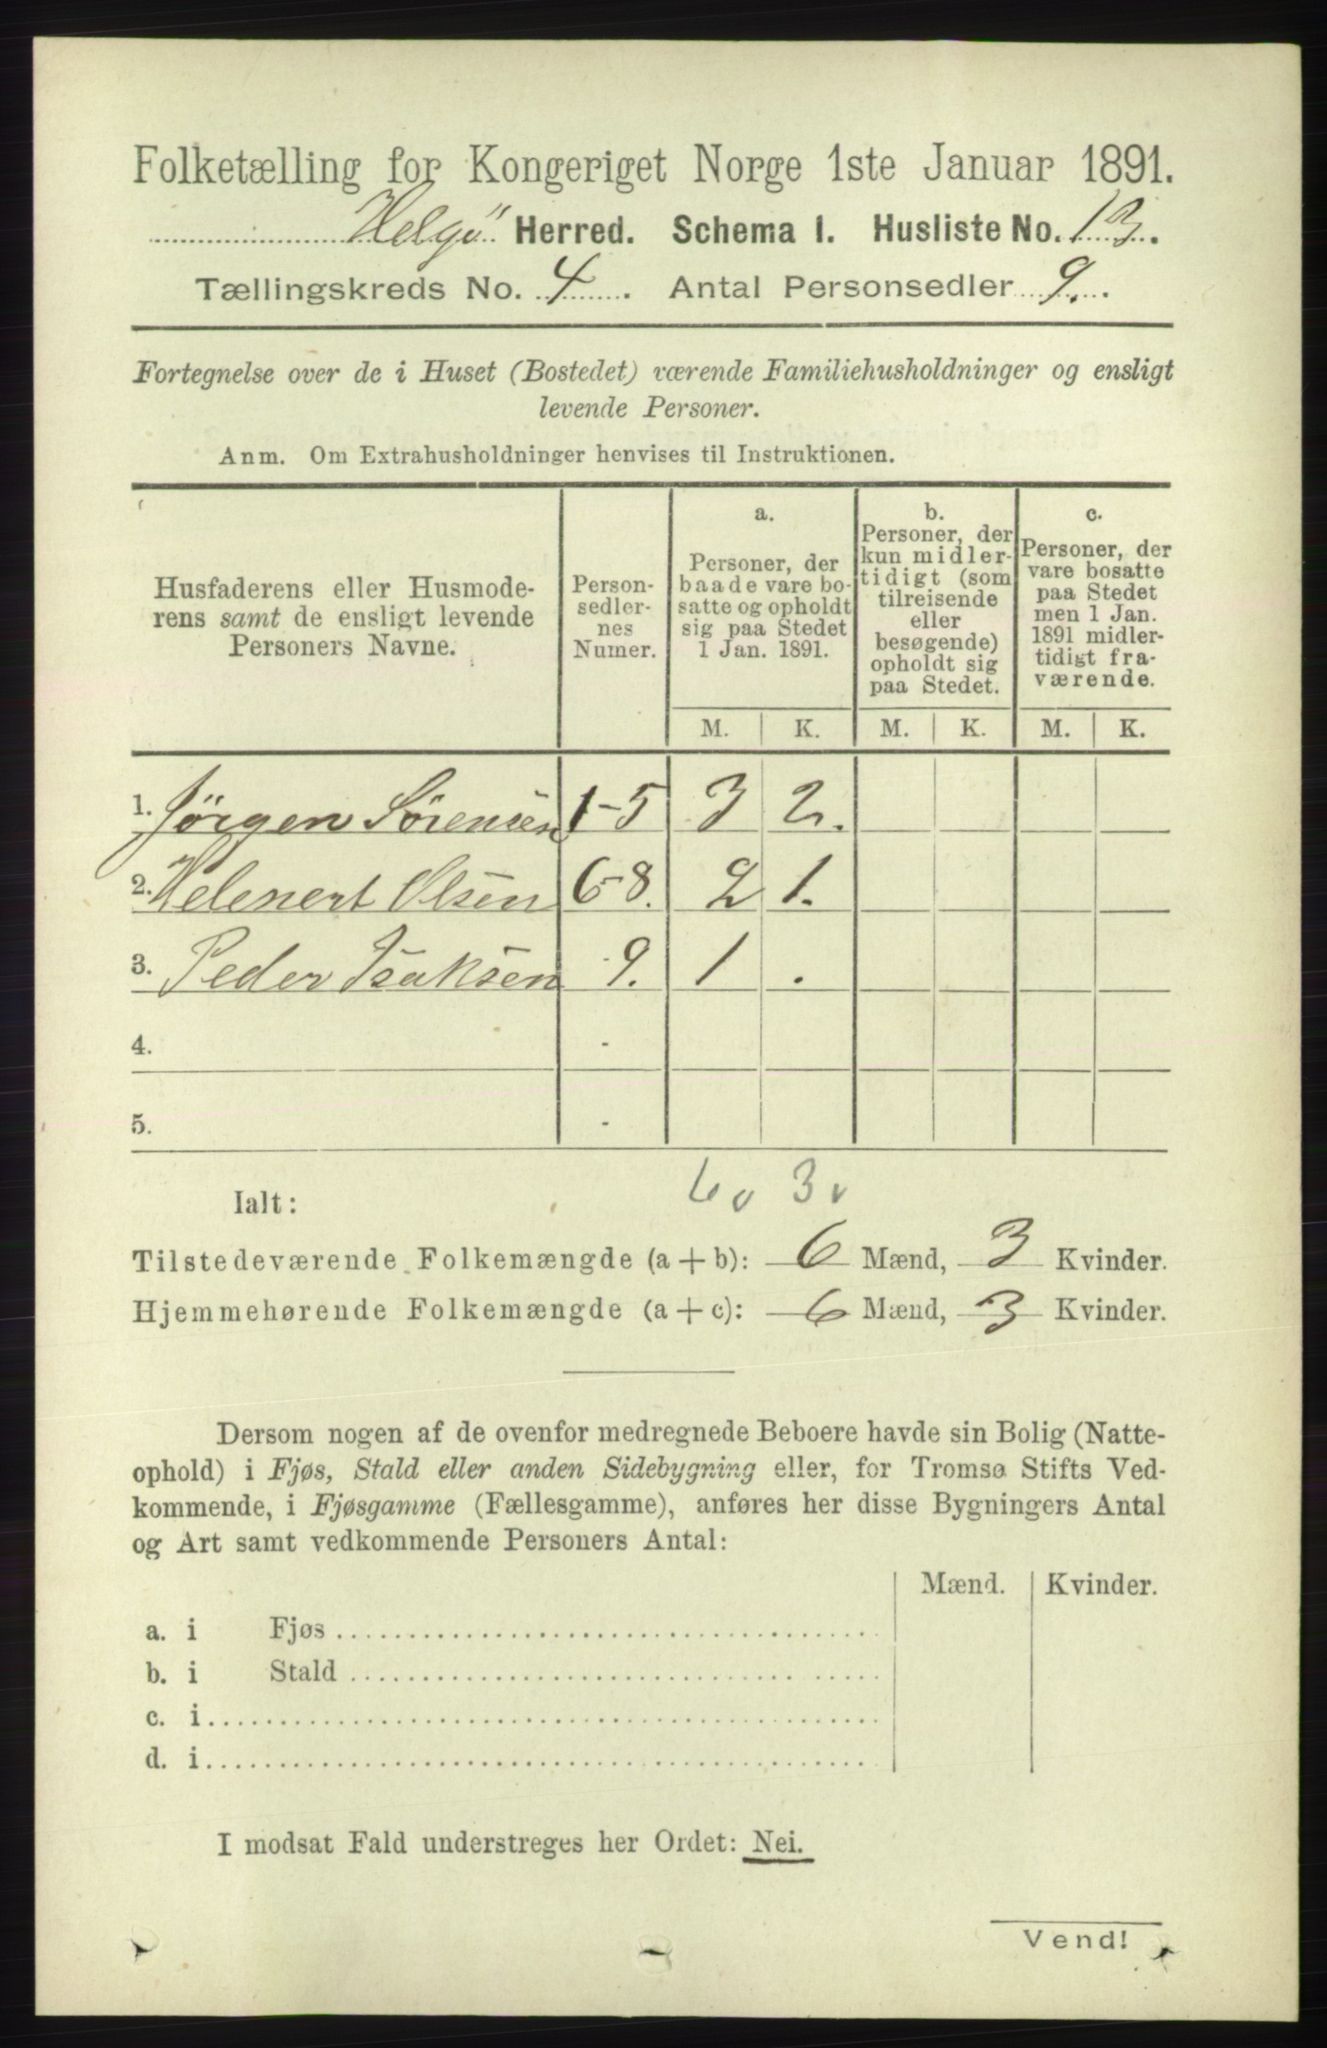 Folketælling for Kongeriget Norge 1ste Januar 1891.
Helgö Herred. Schema I. Husliste No. 13.
Tællingskreds No. 4. Antal Personsedler 9.
Fortegnelse over de i Huset (Bostedet) værende Familiehusholdninger og ensligt
levende Personer.
Anm. Om Extrahusholdninger henvises til Instruktionen.
Husfaderens eller Husmode-
rens samt de ensligt levende
Personers Navne.
Person-
sedler-
nes
Numer.
a.
Personer, der
baade vare bo-
satte og opholdt
sig paa Stedet
1 Jan. 1891.
b.
Personer, der
kun midler-
tidigt (som
tilreisende
eller
besøgende)
opholdt sig
paa Stedet.
c.
Personer, der
vare bosatte
paa Stedet
men 1 Jan.
1891 midler-
tidigt fra-
værende.
M. K. M. K. M. K.
1. Jörgen Sörensen 1-5 3 2.
2. Helmert Olsen 6-8. 2 1.
3. Peder Isaksen 9. 1 .
4. -
5. -
6 v 3 v
Ialt:
Tilstedeværende Folkemængde (a + b): 6 Mænd, 3 Kvinder.
Hjemmehørende Folkemængde (a + c): 6 Mænd, 3 Kvinder.
Dersom nogen af de ovenfor medregnede Beboere havde sin Bolig (Natte-
ophold) i Fjøs, Stald eller anden Sidebygning eller, for Tromsø Stifts Ved-
kommende, i Fjøsgamme (Fællesgamme), anføres her disse Bygningers Antal
og Art samt vedkommende Personers Antal:
Mænd. Kvinder.
a. i Fjøs
b. i Stald
c. i
d. i
I modsat Fald understreges her Ordet: Nei.
Vend!